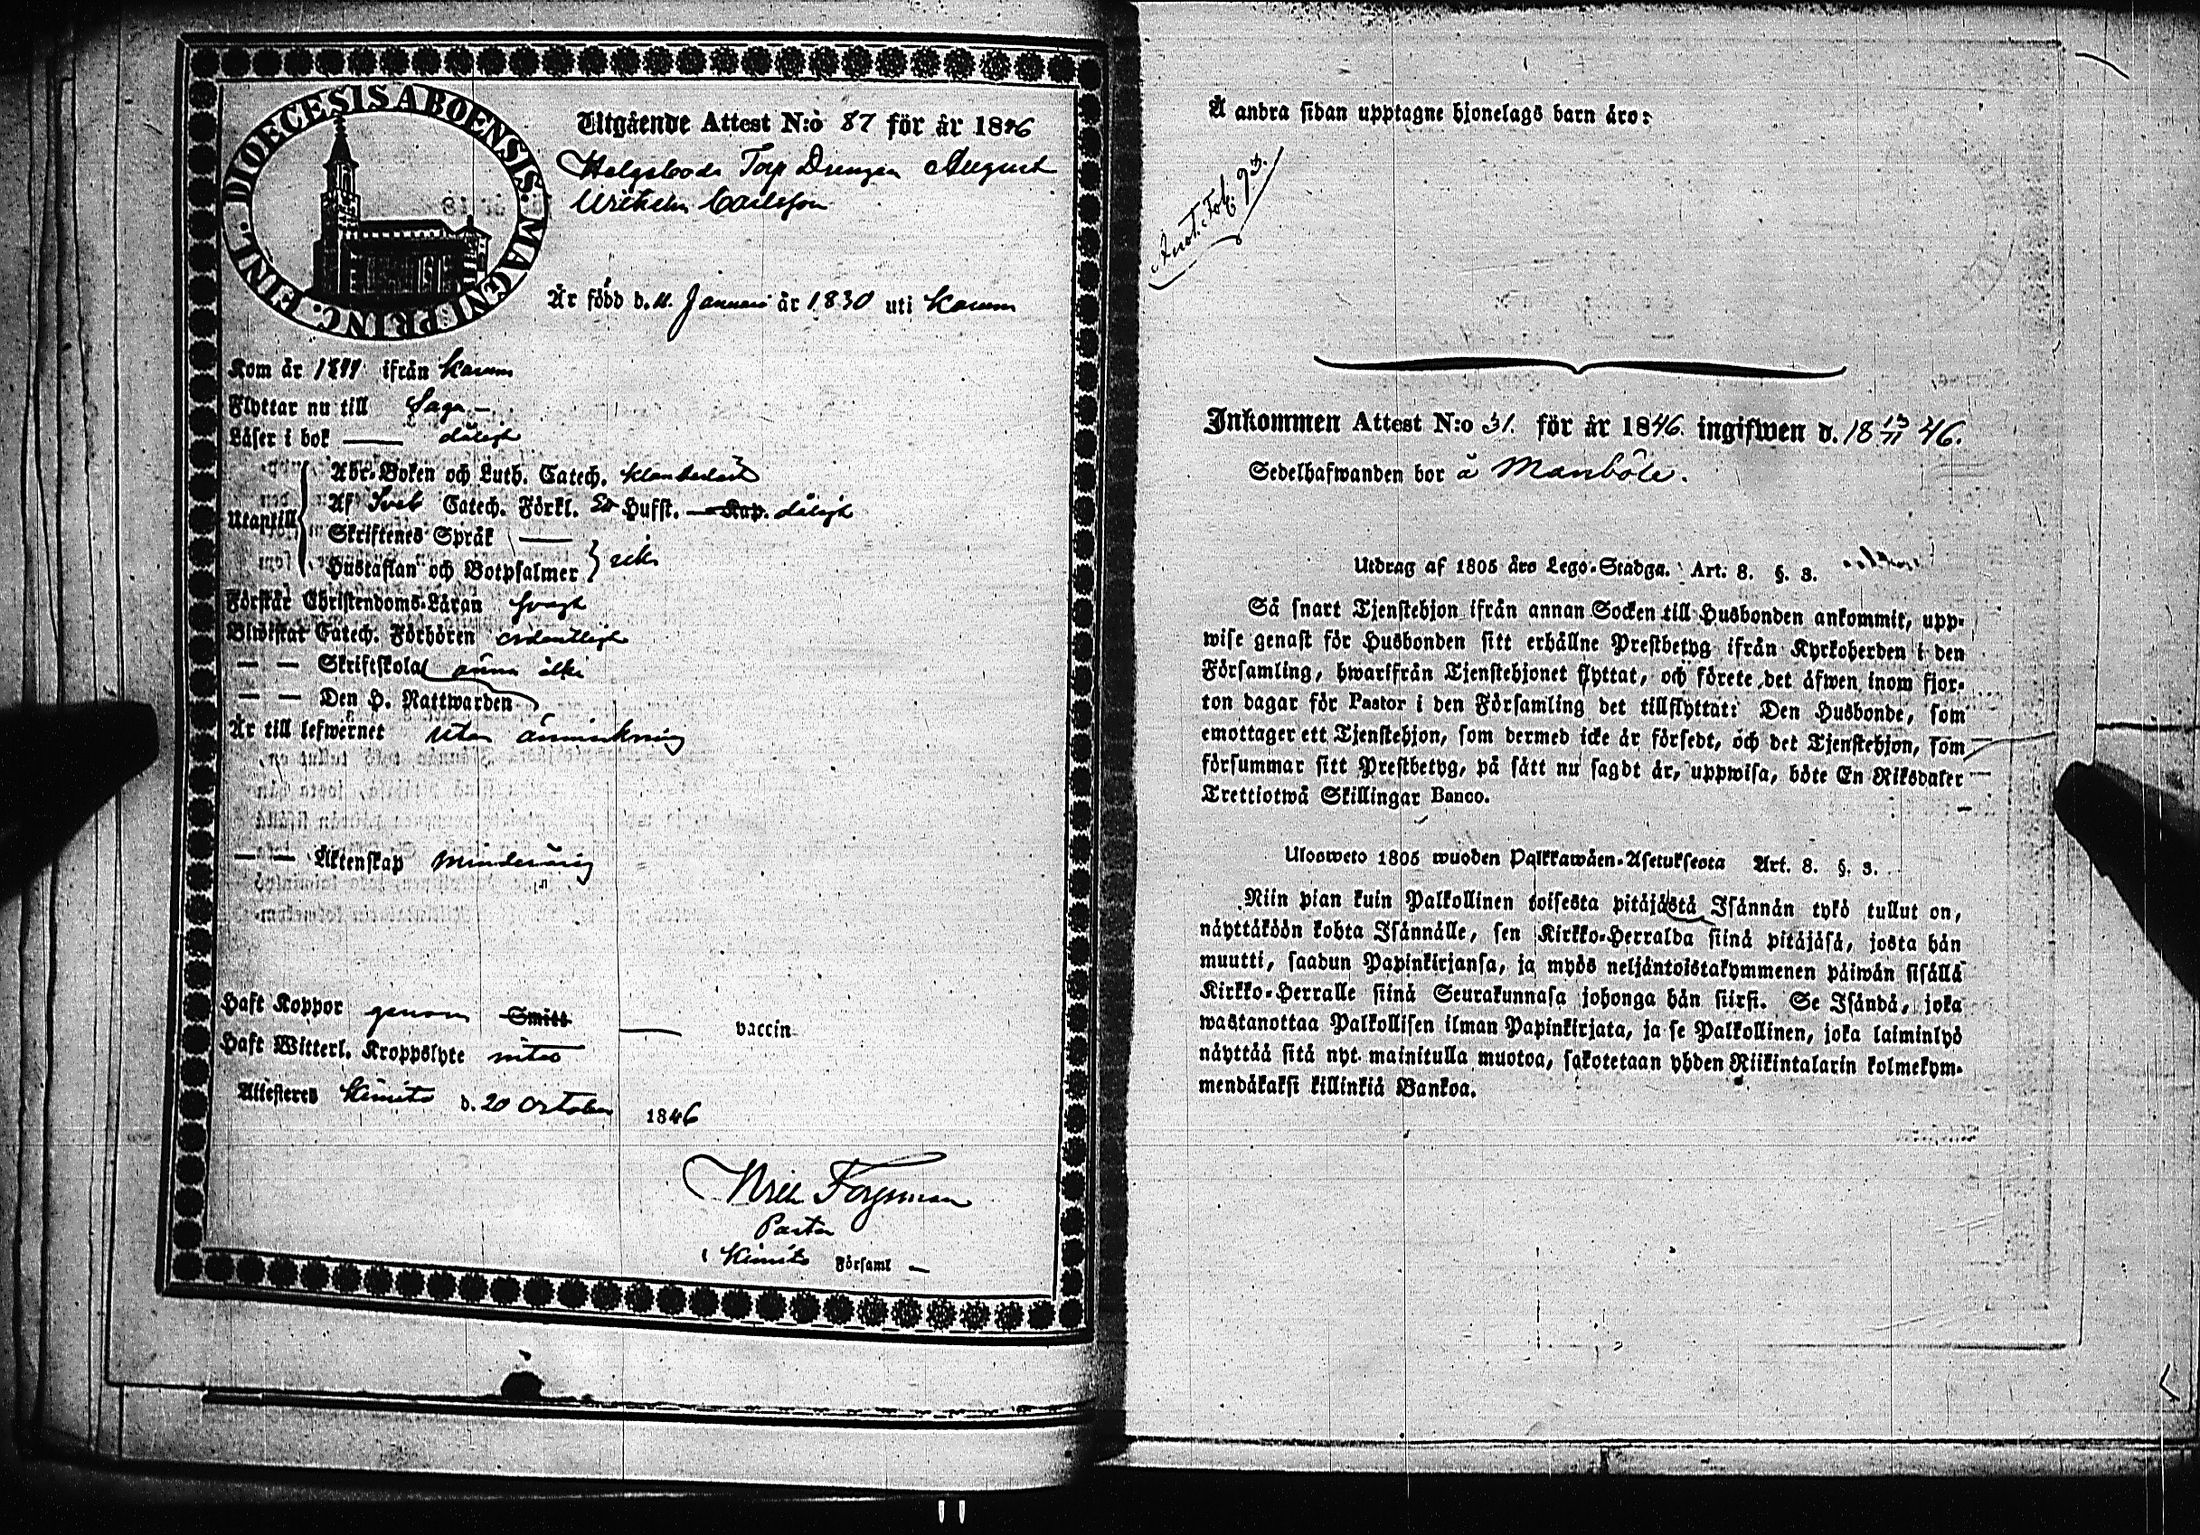 DIOECESIS ABOENSIS. MAGNI PRINC. FINL.
Utgående Attest N:o 87 för år 1846
Helgeboda Torp Drengen August
Wilhelm Carlsson
Är född d. 11. Januari år 1830 uti Karuna
Kom år 1844 ifrån Karuna
Flyttar nu till Sagu
Läser i bok — dåligt
Abc-Boken och Luth. Catech. klanderlöst
Utantill Af Sveb Catech. Förkl. Hufst. Kap. dåligt
Skriftenes Språk —
Hustaflan och Botpsalmer icke
Förstår Christendoms-Läran svagt
Biwistat Catech. Förhören ordentligt
— — Skriftskola ännu icke
— — Den H. Nattwarden
Är till lefwernet utan anmärkning
— — Äktenskap minderårig
Haft Koppor genom Smitt — vaccin
Haft Witterl. Kroppslyte intet
Attesteres Kimito d. 20 October 1846
Forssman
Pastor
i Kimito Församl —
Å andra sidan upptagne hjonelags barn äro:
Inkommen Attest N:o 31. för år 1846. ingifwen d. 18 13/11 46.
Sedelhafwanden bor å Manböle.
Utdrag af 1805 års Lego-Stadga. Art: 8. §. 3.
Så snart Tjenstehjon ifrån annan Socken till Husbonden ankommit, upp-
wise genast för Husbonden sitt erhållne Prestbetyg ifrån Kyrkoherden i den
Församling, hwarifrån Tjenstehjonet flyttat, och förete det äfwen inom fjor-
ton dagar för Pastor i den Församling det tillflyttat: Den Husbonde, som
emottager ett Tjenstehjon, som dermed icke är försedt, och det Tjenstehjon, som
försummar sitt Prestbetyg, på sätt nu sagdt är, uppwisa, böte En Riksdaler
Trettiotwå Skillingar Banco.
Ulosweto 1805 wuoden Palkkawäen-Asetuksesta Art. 8. §. 3.
Niin pian kuin Palkollinen toisesta pitäjästä Isännän tykö tullut on,
näyttäköön kohta Isännälle, sen Kirkko-Herralda siinä pitäjäsä, josta hän
muutti, saadun Papinkirjansa, ja myös neljäntoistakymmenen päiwän sisällä
Kirkko-Herralle siinä Seurakunnasa johonga hän siirsi. Se Isändä, joka
wastanottaa Palkollisen ilman Papinkirjata, ja se Palkollinen, joka laiminlyö
näyttää sitä nyt mainitulla muotoa, sakotetaan yhden Riikintalarin kolmekym-
mendäkaksi killinkiä Bankoa.